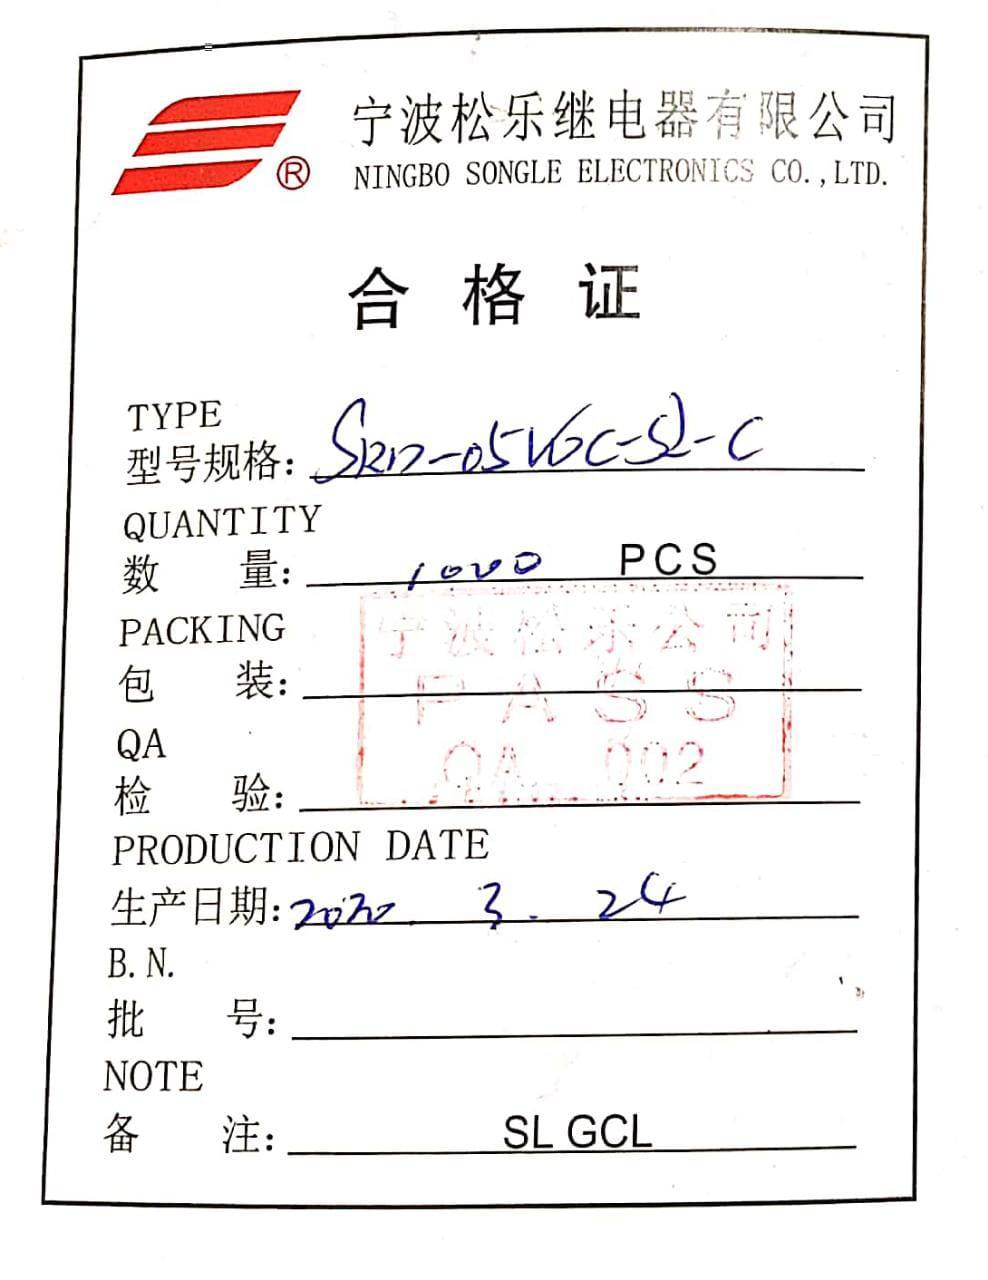 宁波松乐继电器有限公司
®
NINGBO SONGLE ELECTRONICS CO.,LTD.
合 格 证
TYPE
型号规格: SRD-05VDC-SL-C
QUANTITY
数 量: 1000 PCS
PACKING
包 装:
宁波松乐公司
PASS
QA 002
QA
检 验:
PRODUCTION DATE
生产日期: 2020. 3. 24
B.N.
批 号:
NOTE
备 注: SL GCL